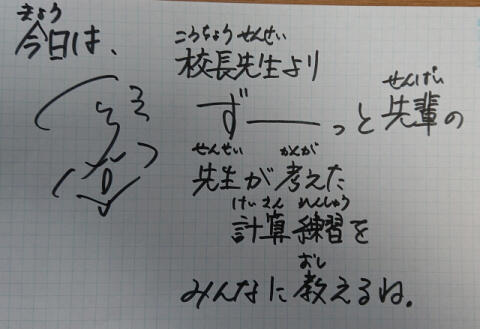 きょう
今日は、
こうちょうせんせい
校長先生より
ず――っと
せんぱい
先輩の
せんせい かんが
先生が考えた
けいさん れんしゅう
計算練習を
おし
みんなに教えるね.